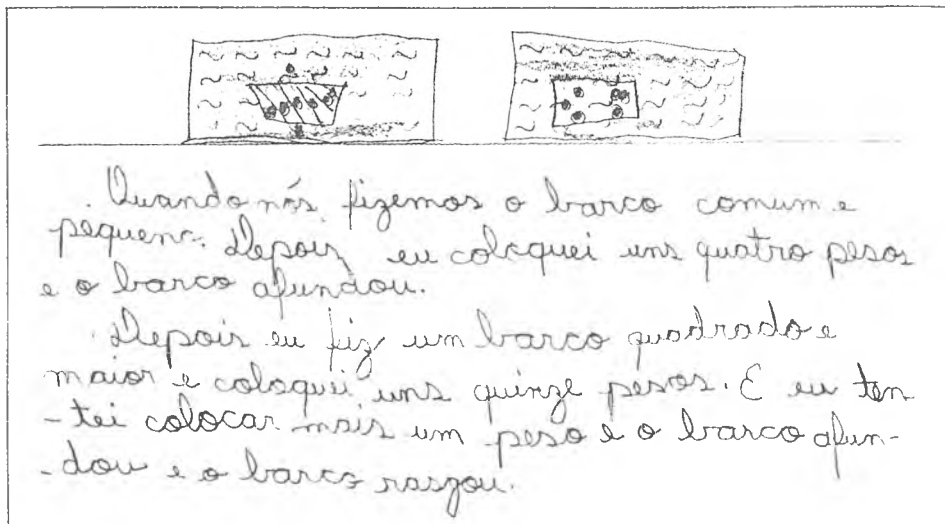 . Quando nós, fizemos o barco comum e
pequeno. Depois, eu coloquei uns quatro pesos
e o barco afundou.
. Depois eu fiz um barco quadrado e
maior e coloquei uns quinze pesos. E eu ten
-tei colocar mais um peso e o barco afun-
-dou e o barco rasgou.